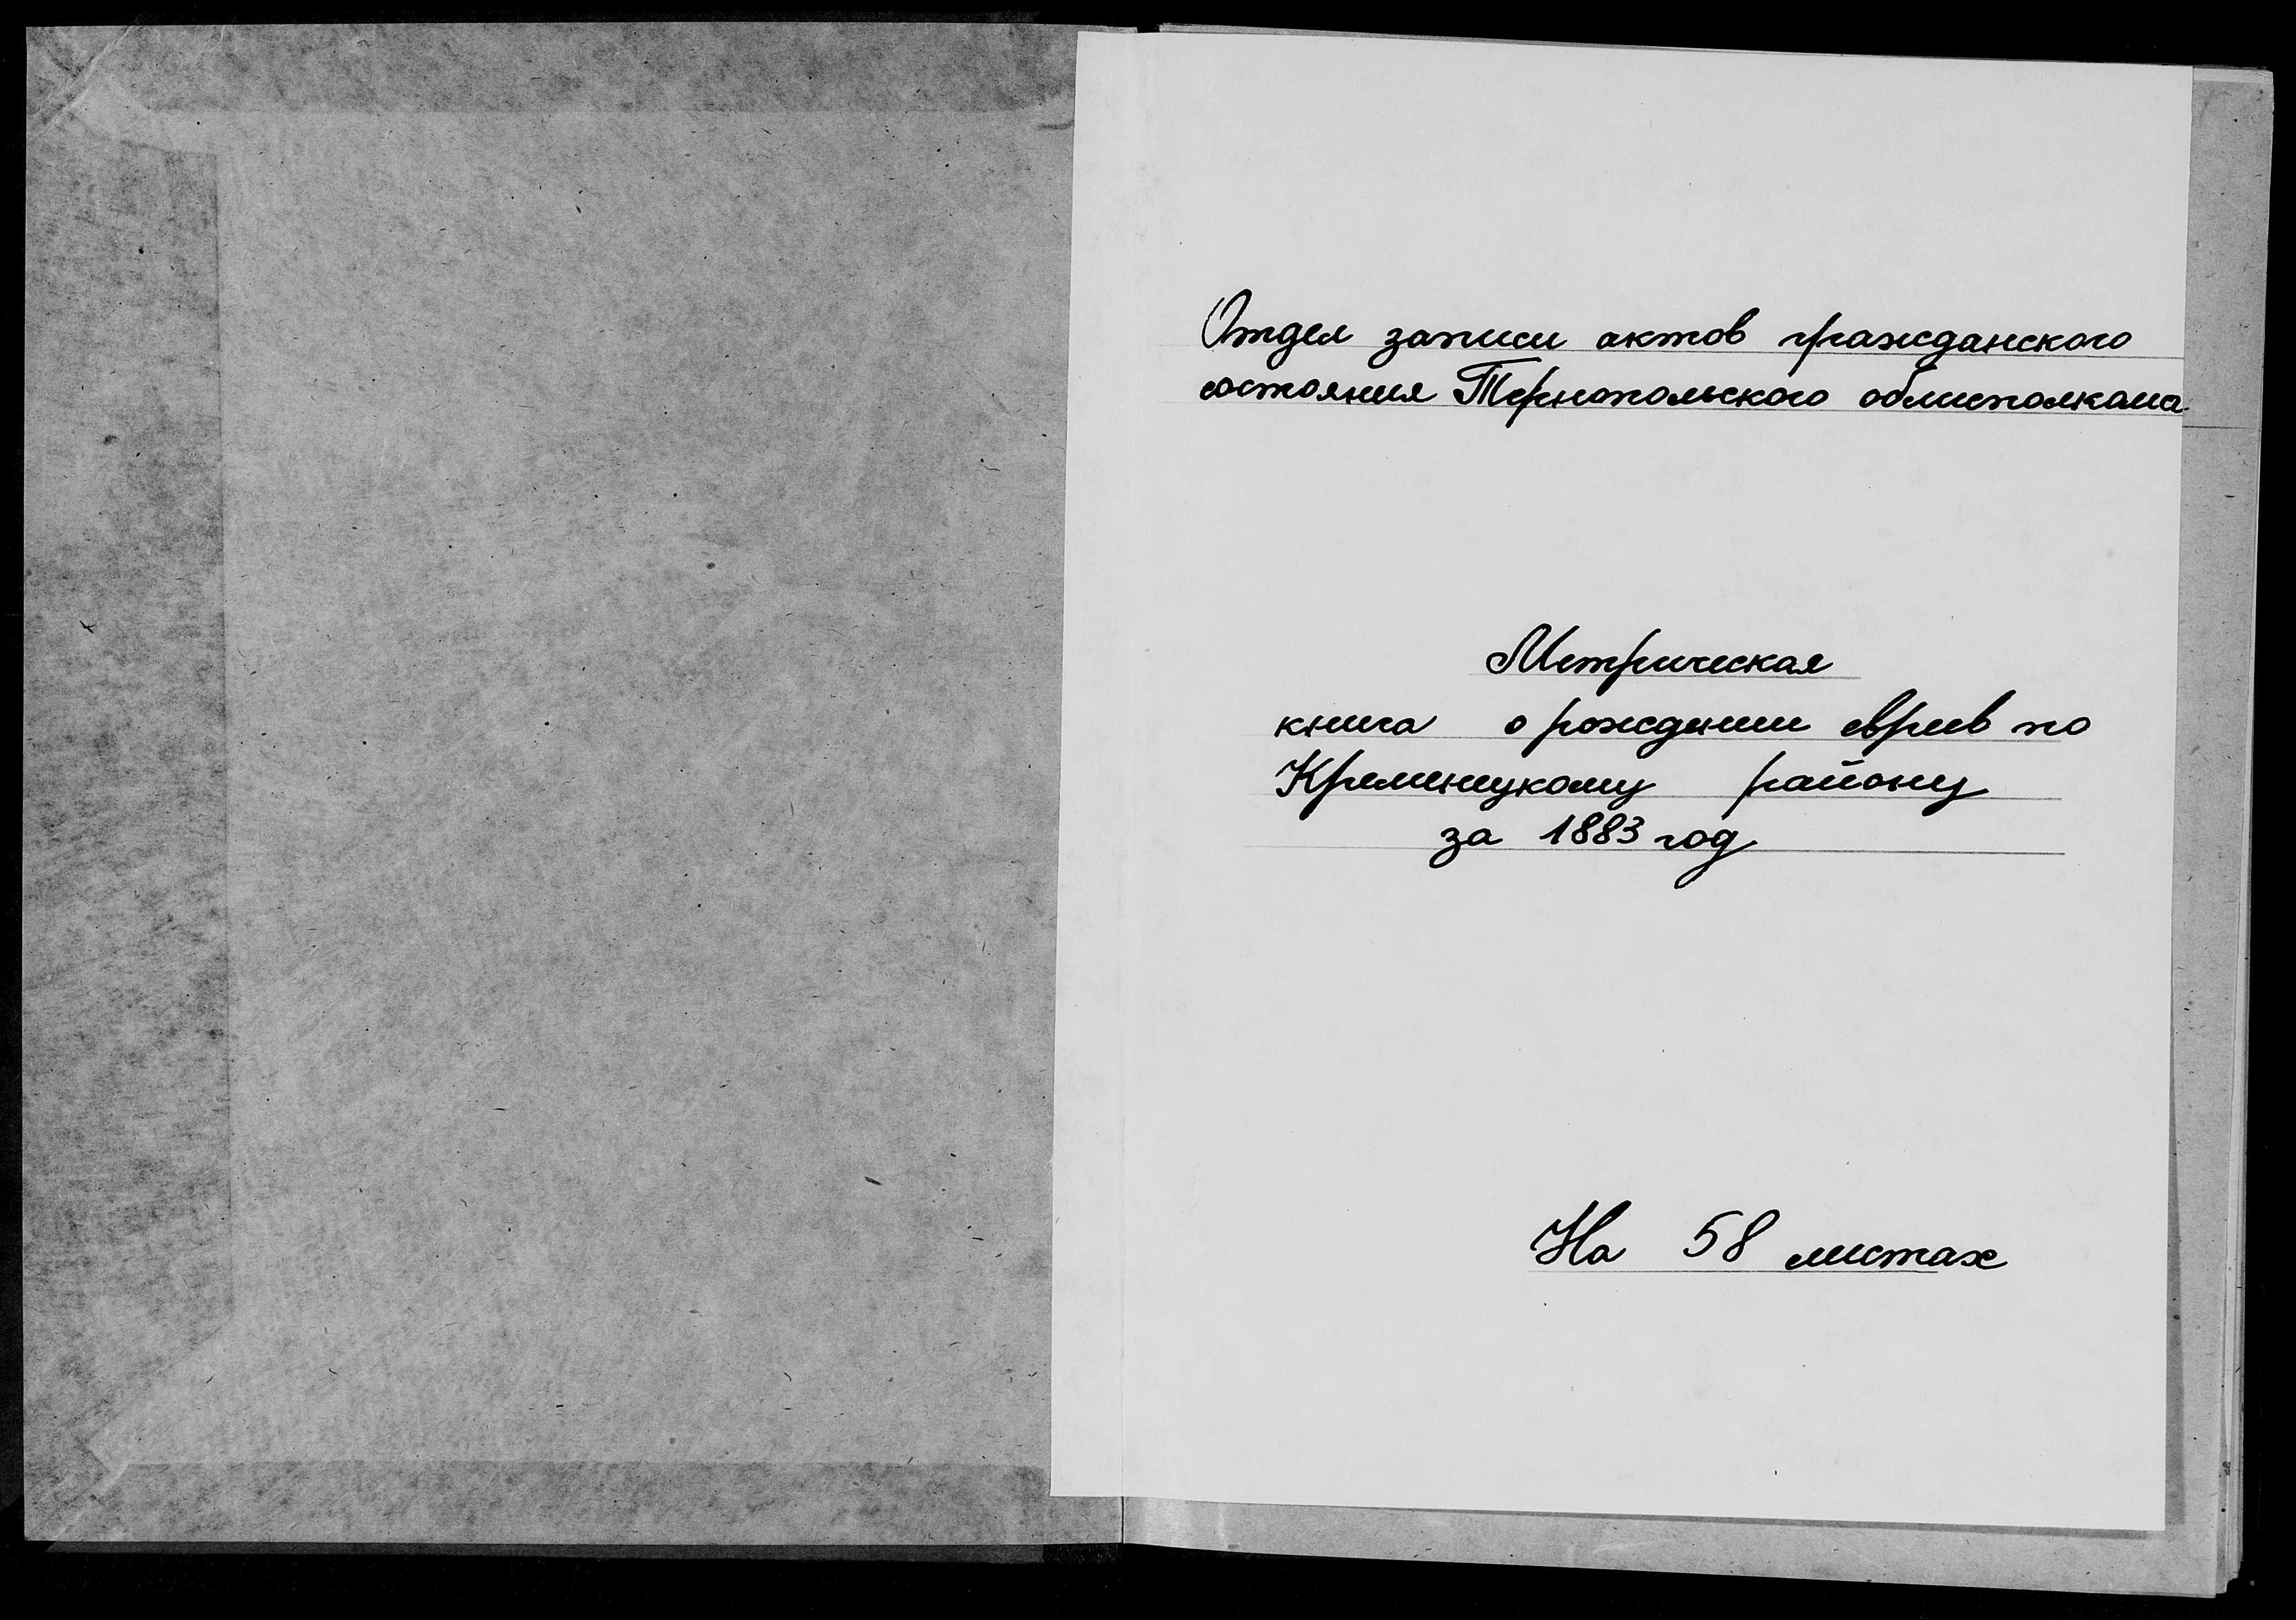 Отдел записи актов гражданского
состояния Тернопольского облисполкома
Метрическая
книга о рождении евреев по
Кременецкому району
за 1883 год
На 58 листах